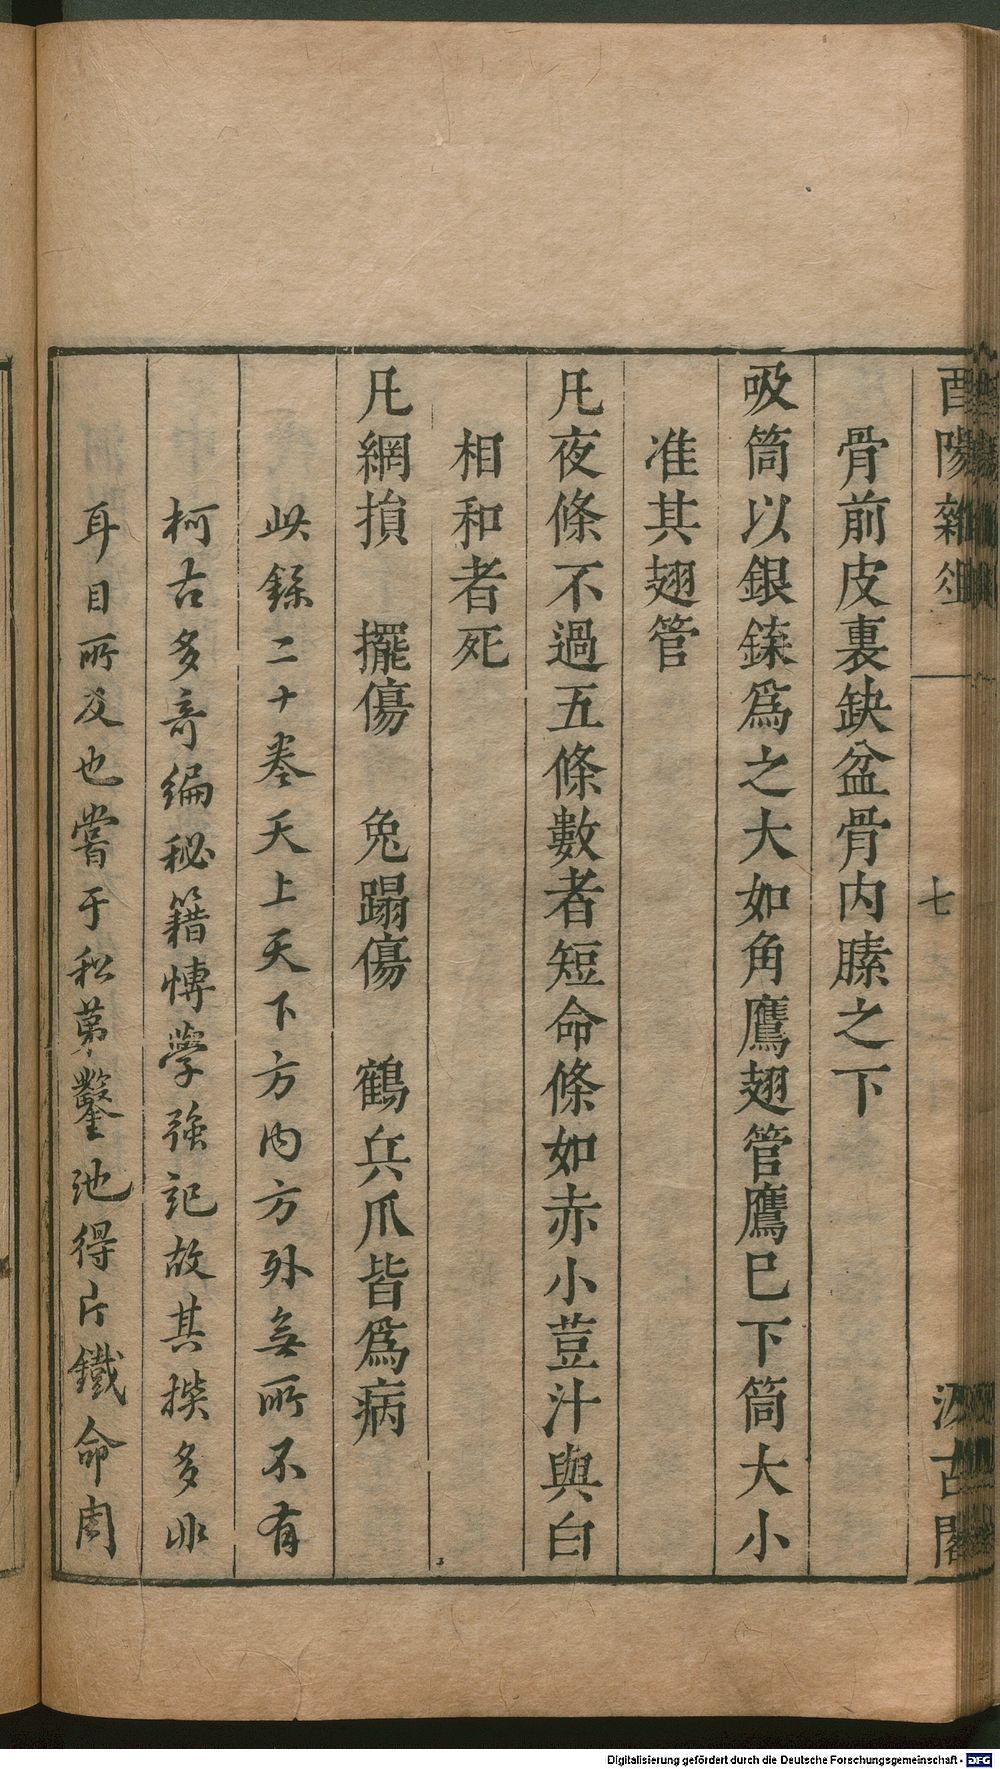 酉陽雜俎 七 汲古閣
骨前皮裏缺盆骨内膆之下
吸筒以銀鍒爲之大如角鷹翅管鷹巳下筒大小
准其翅管
凡夜條不過五條數者短命條如赤小荳汁與白
相和者死
凡網損 擺傷 兔蹋傷 鶴兵爪皆爲病
此錄二十卷天上天下方内方外無所不有
柯古多奇編秘籍博學強記故其撰多非
耳目所及也嘗于私第鑿池得片鐵命周
Digitalisierung gefördert durch die Deutsche Forschungsgemeinschaft - DFG